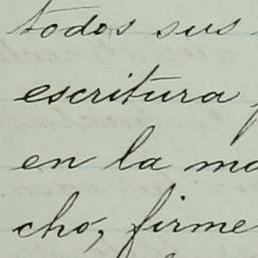 todos sus
escritura
en la
cho, firme